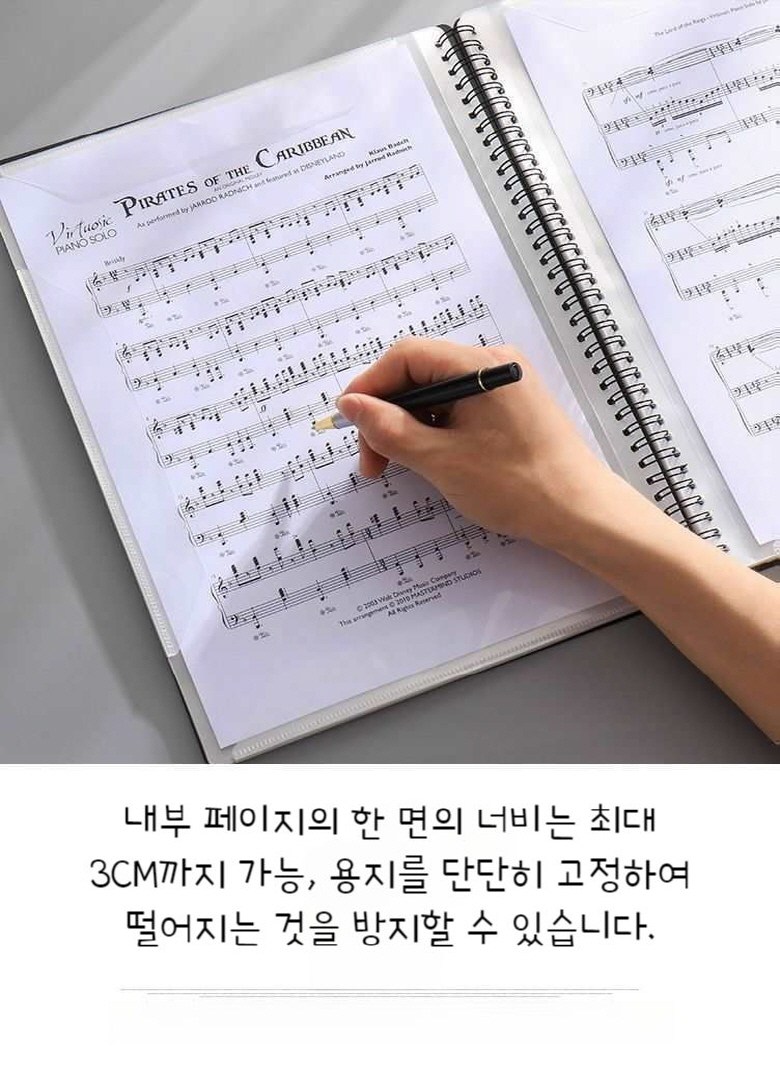 PIRATES OF THE CARIBBEAN
AN ORIGINAL MEDLEY
As performed by JARROD RADNICH and featured at DISNEYLAND
Klaus Badelt
Arranged by Jarrod Radnich
Virtuosic
PIANO SOLO
Briskly
© 2003 Walt Disney Music Company
This arrangement © 2010 MASTERMIND STUDIOS
All Rights Reserved
The Lord of the Rings - Virtuosic Piano Solo
내부 페이지의 한 면의 너비는 최대
3CM까지 가능, 용지를 단단히 고정하여
떨어지는 것을 방지할 수 있습니다.